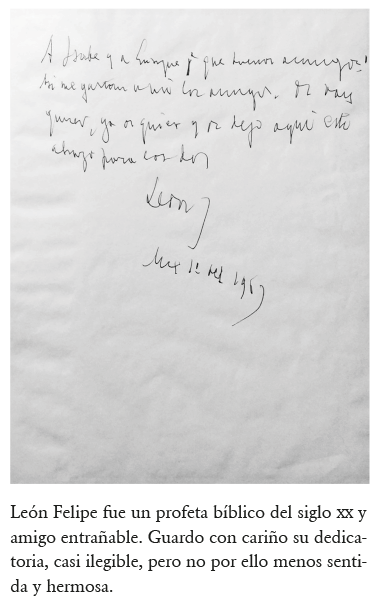 A Isabel y a Enrique ¡que buenos amigos!
los amigos. Os
quiero, ya os quiero y os dejo aquí este
abrazo para los dos
León
Mex 1 1967
León Felipe fue un profeta bíblico del siglo XX y
amigo entrañable. Guardo con cariño su dedica-
toria, casi ilegible, pero no por ello menos senti-
da y hermosa.